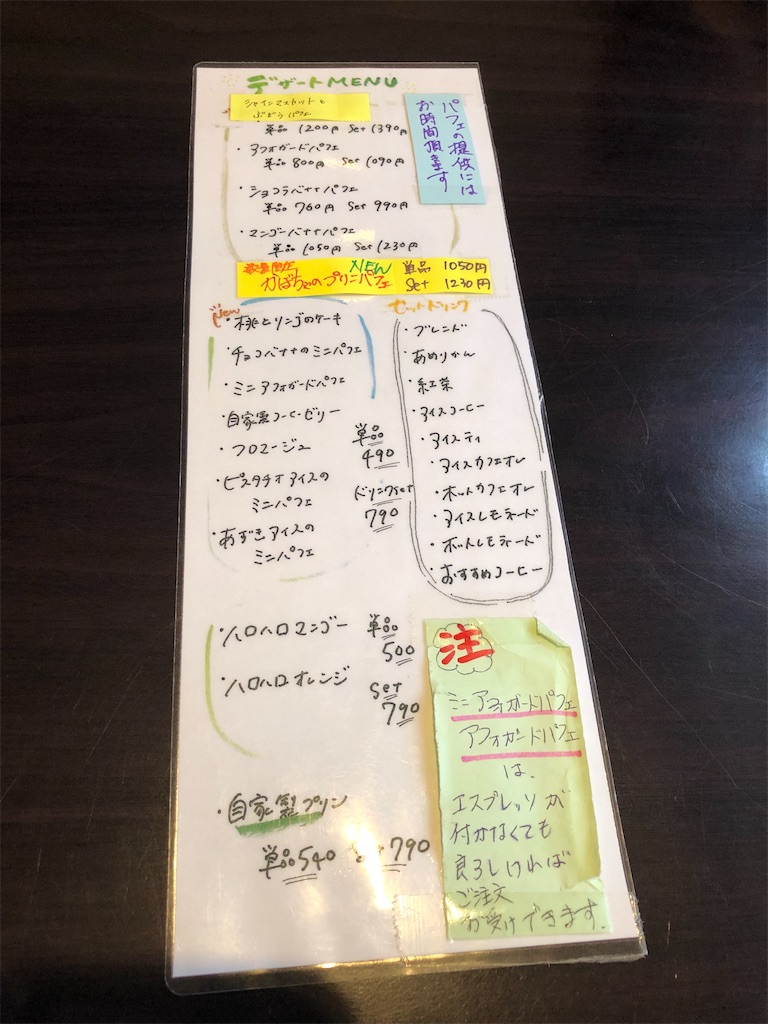 デザートMENU
シャインマスカットと
ぶどうパフェ
単品 1200円 Set 1390円
・アフォガードパフェ
単品 800円 Set 1090円
・ショコラバナナパフェ
単品 760円 Set 990円
・マンゴーバナナパフェ
単品 1050円 Set 1230円
パフェの提供には
お時間頂きます
数量限定 NEW
かぼちゃのプリンパフェ
単品 1050円
Set 1230円
New
・桃とリンゴのケーキ
・チョコバナナのミニパフェ
・ミニアフォガードパフェ
・自家製コーヒーゼリー
・フロマージュ
・ピスタチオアイスの
ミニパフェ
・あずきアイスの
ミニパフェ
単品
490
ドリンクset
790
セットドリンク
・ブレンド
・あめりかん
・紅茶
・アイスコーヒー
・アイスティ
・アイスカフェオレ
・ホットカフェオレ
・アイスレモネード
・ホットレモネード
・おすすめコーヒー
・ハロハロマンゴー
・ハロハロオレンジ
単品
500
Set
790
・自家製プリン
単品540 Set 790
注
ミニアフォガードパフェ
アフォガードパフェ
は、
エスプレッソが
付かなくても
良ろしければ
ご注文
お受けできます.